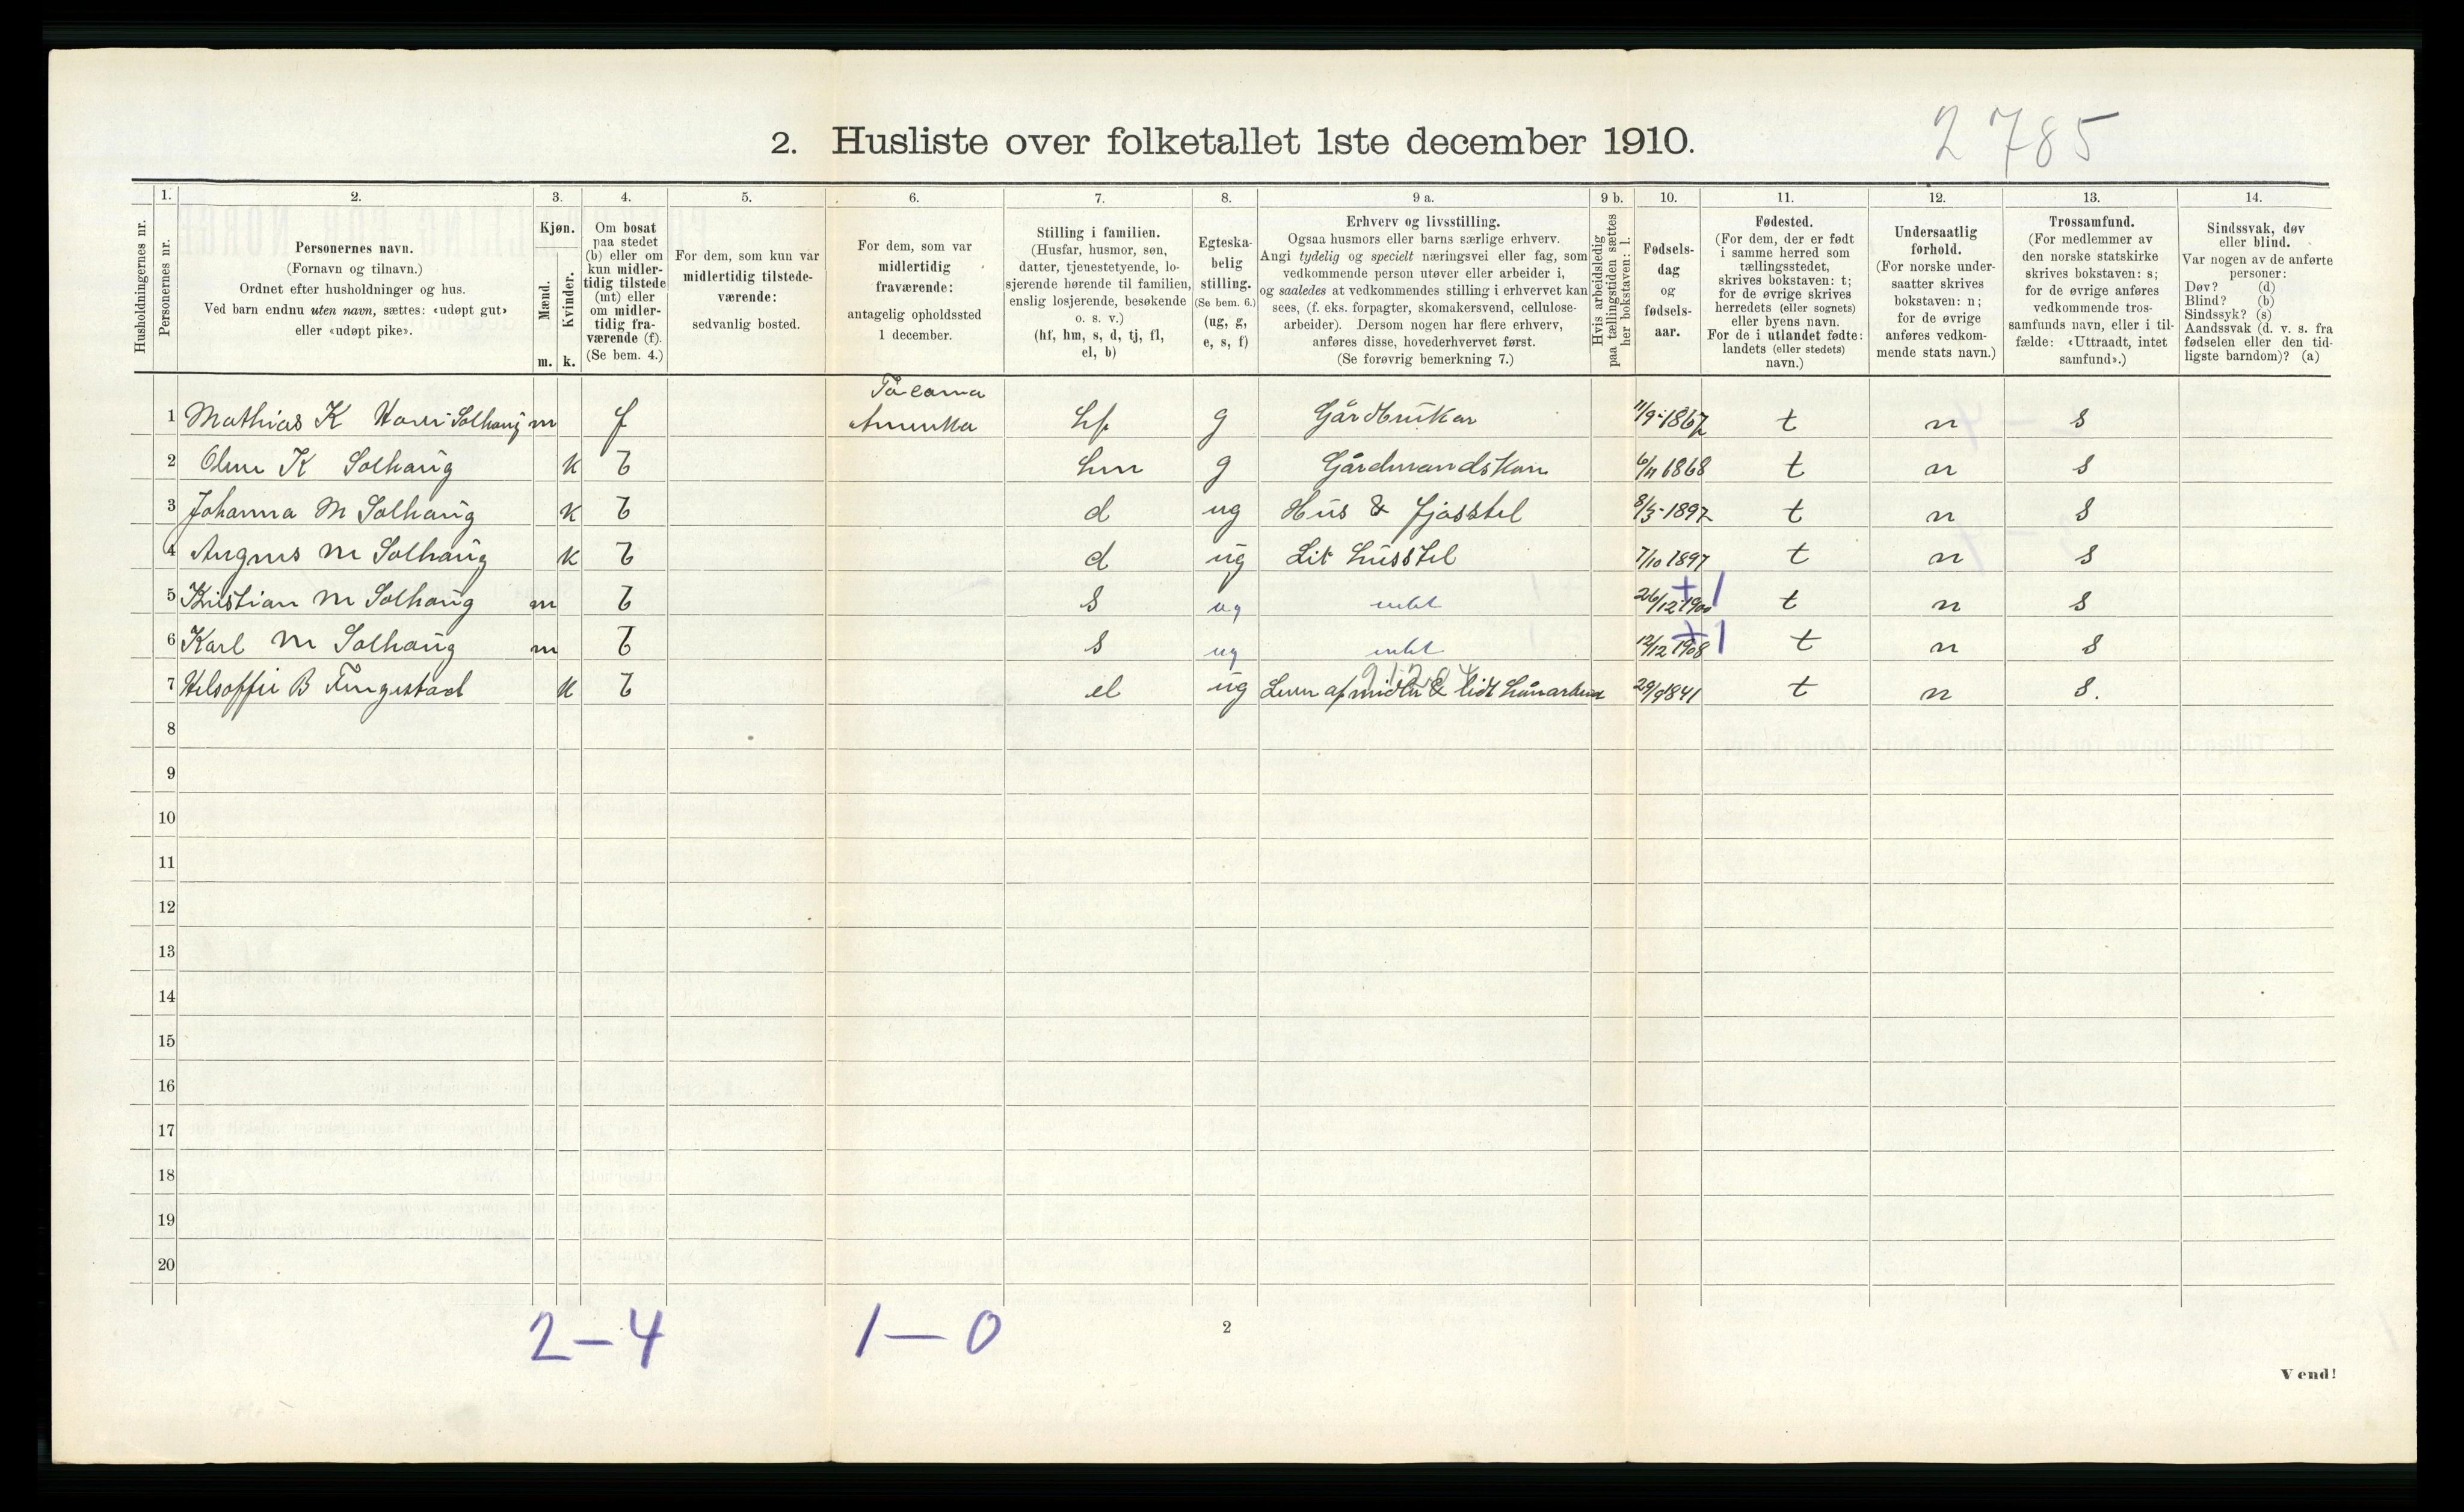 2. Husliste over folketallet 1ste december 1910.
2785
Husholdningernes nr.
1. Personernes nr.
2. Personernes navn. (Fornavn og tilnavn.) Ordnet efter husholdninger og hus. Ved barn endnu uten navn, sættes: «udøpt gut» eller «udøpt pike».
3. Kjøn. Mænd. m. Kvinder. k.
4. Om bosat paa stedet (b) eller om kun midlertidig tilstede (mt) eller om midlertidig fraværende (f). (Se bem. 4.)
5. For dem, som kun var midlertidig tilstedeværende: sedvanlig bosted.
6. For dem, som var midlertidig fraværende: antagelig opholdssted 1 december.
7. Stilling i familien. (Husfar, husmor, søn, datter, tjenestetyende, losjerende hørende til familien, enslig losjerende, besøkende o. s. v.) (hf, hm, s, d, tj, fl, el, b)
8. Egteskabelig stilling. (Se bem. 6.) (ug, g, e, s, f)
9 a. Erhverv og livsstilling. Ogsaa husmors eller barns særlige erhverv. Angi tydelig og specielt næringsvei eller fag, som vedkommende person utøver eller arbeider i, og saaledes at vedkommendes stilling i erhvervet kan sees, (f. eks. forpagter, skomakersvend, cellulosearbeider). Dersom nogen har flere erhverv, anføres disse, hovederhvervet først. (Se forøvrig bemerkning 7.)
9 b. Hvis arbeidsledig paa tællingstiden sættes her bokstaven: l.
10. Fødselsdag og fødselsaar.
11. Fødested. (For dem, der er født i samme herred som tællingsstedet, skrives bokstaven: t; for de øvrige skrives herredets (eller sognets) eller byens navn. For de i utlandet fødte: landets (eller stedets) navn.)
12. Undersaatlig forhold. (For norske undersaatter skrives bokstaven: n; for de øvrige anføres vedkommende stats navn.)
13. Trossamfund. (For medlemmer av den norske statskirke skrives bokstaven: s; for de øvrige anføres vedkommende trossamfunds navn, eller i tilfælde: «Uttraadt, intet samfund».)
14. Sindssvak, døv eller blind. Var nogen av de anførte personer: Døv? (d) Blind? (b) Sindssyk? (s) Aandssvak (d. v. s. fra fødselen eller den tidligste barndom)? (a)
Tacoma
1 Mathias K Solhaug m f Amerika hf g Gårdbruker 11/9-1867 t n s
2 K Solhaug k b hm g Gårdmandskone 6/11 1868 t n s
3 Johanna M Solhaug k b d ug Hus & fjøsstel 8/5-1897 t n s
4 M Solhaug k b d ug Lit husstel 7/10 1897 t n s
5 Kristian M Solhaug m b s ug intet 26/12-1900 +1 t n s
6 Karl M Solhaug m b s ug intet 12/12 1908 +1 t n s
7 B k b el ug Lever af midler & lidt håndarbeid 29/9 1841 t n s.
8
9
10
11
12
13
14
15
16
17
18
19
20
2-4 1-0
2
Vend!